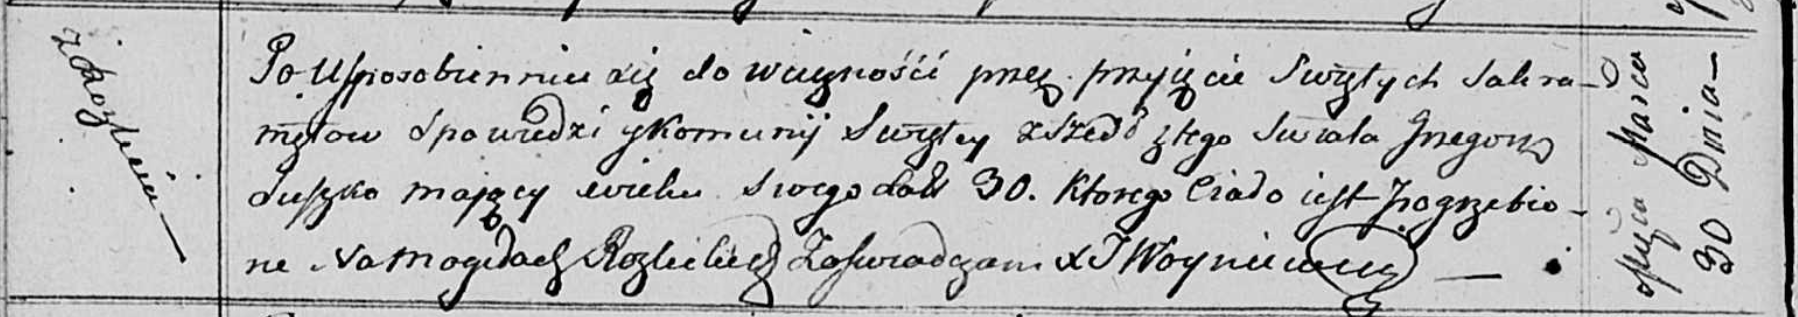 z Rozlicia
Po Usposobienniu się do wieznośći przez przyięcie Swiętych Sakra-
mętow Spowiedzi y Komunij Swiętey zszedł z tego Swiata Grzegorz
Suszko maiący wieku swego lat 30. Ktorego Ciało iest pogrzebio-
ne Na mogiłach Rozlickich Zaswiadczam X J Woyniewicz
Mięca Marca
30 Dnia